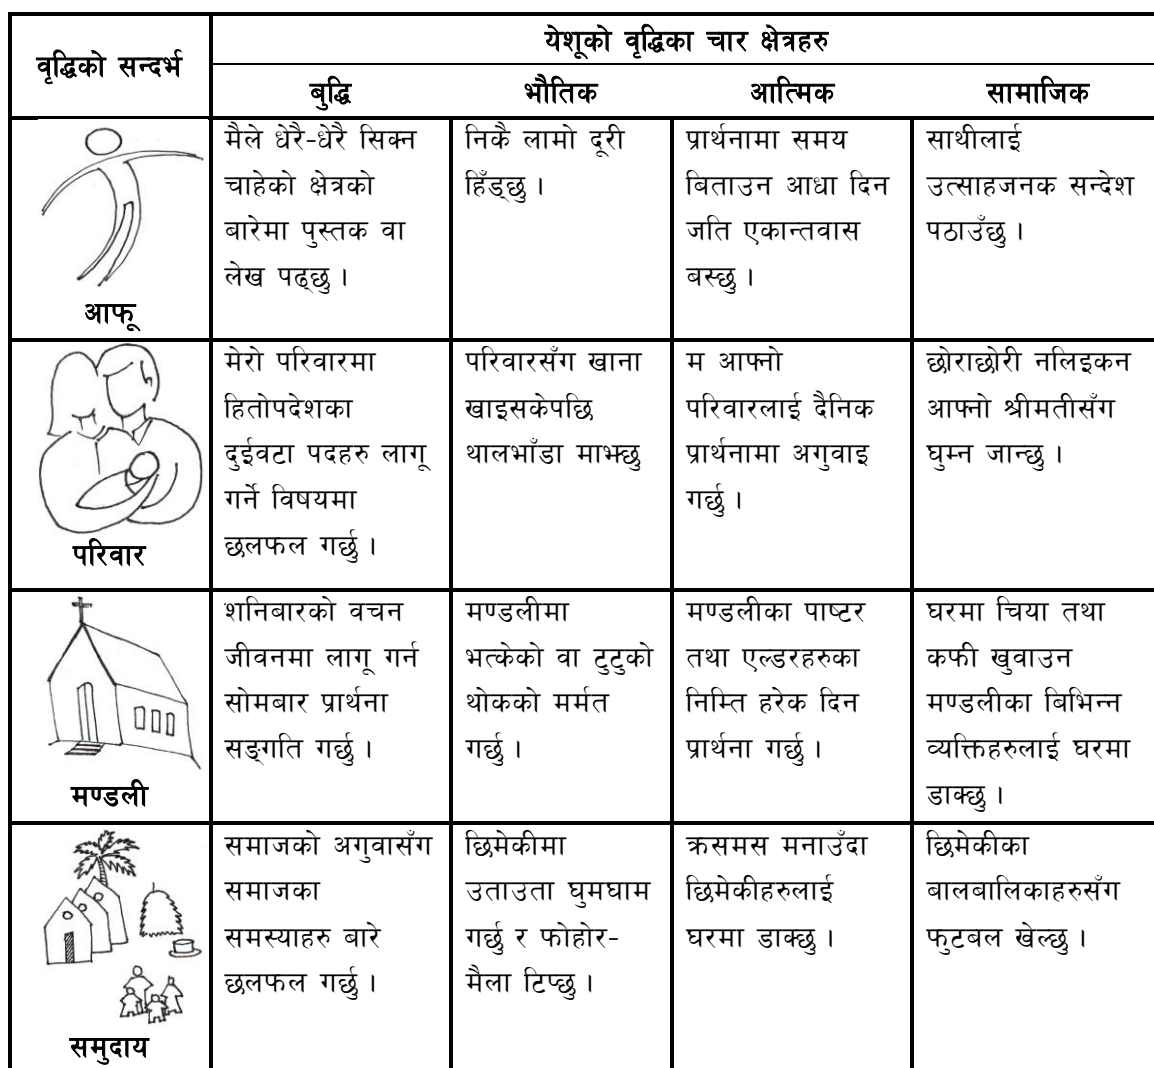 वृद्धिको सन्दर्भ
येशूको वृद्धिका चार क्षेत्रहरु
बुद्धि
भौतिक
आत्मिक
सामाजिक
आफू
मैले धेरै-धेरै सिक्न
चाहेको क्षेत्रको
बारेमा पुस्तक वा
लेख पढ्छु ।
निकै लामो दूरी
हिँड्छु ।
प्रार्थनामा समय
बिताउन आधा दिन
जति एकान्तवास
बस्छु ।
साथीलाई
उत्साहजनक सन्देश
पठाउँछु ।
परिवार
मेरो परिवारमा
हितोपदेशका
दुईवटा पदहरु लागू
गर्ने विषयमा
छलफल गर्छु ।
परिवारसँग खाना
खाइसकेपछि
थालभाँडा माझ्छु
म आफ्नो
परिवारलाई दैनिक
प्रार्थनामा अगुवाइ
गर्छु ।
छोराछोरी नलिइकन
आफ्नो श्रीमतीसँग
घुम्न जान्छु ।
मण्डली
शनिबारको वचन
जीवनमा लागू गर्न
सोमबार प्रार्थना
सङ्गति गर्छु ।
मण्डलीमा
भत्केको वा टुटुको
थोकको मर्मत
गर्छु ।
मण्डलीका पाष्टर
तथा एल्डरहरुका
निम्ति हरेक दिन
प्रार्थना गर्छु ।
घरमा चिया तथा
कफी खुवाउन
मण्डलीका बिभिन्न
व्यक्तिहरुलाई घरमा
डाक्छु ।
समुदाय
समाजको अगुवासँग
समाजका
समस्याहरु बारे
छलफल गर्छु ।
छिमेकीमा
उताउता घुमघाम
गर्छु र फोहोर-
मैला टिप्छु ।
क्रसमस मनाउँदा
छिमेकीहरुलाई
घरमा डाक्छु ।
छिमेकीका
बालबालिकाहरुसँग
फुटबल खेल्छु ।